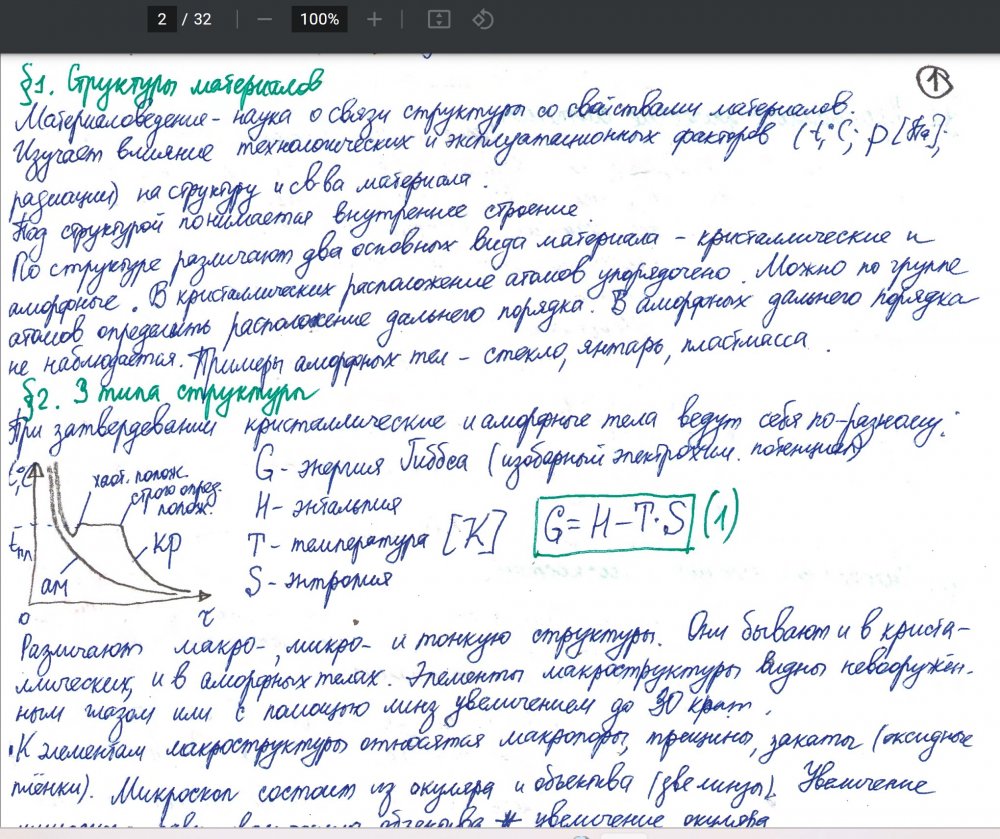 2 / 32
100%
§1. Структуры материалов
1
Материаловедение - наука о связи структуры со свойствами материалов.
Изучает влияние технологических и эксплуатационных факторов (t,°C; p [Па];
радиации) на структуру и св-ва материала.
Под структурой понимается внутреннее строение.
По структуре различают два основных вида материала - кристаллические и
аморфные. В кристаллических расположение атомов упорядочено. Можно по группе
атомов определить расположение дальнего порядка. В аморфных дальнего порядка
не наблюдается. Примеры аморфных тел - стекло, янтарь, пластмасса.
§2. 3 типа структуры
При затвердевании кристаллические и аморфные тела ведут себя по-разному:
t,°C
хаот. полож.
строго опред.
полож.
tпл
ам
кр
0
τ
G - энергия Гиббса (изобарный электрохим. потенциал)
H - энтальпия
T - температура [K]
S - энтропия
G = H - T·S (1)
Различают макро-, микро- и тонкую структуры. Они бывают и в криста-
ллических, и в аморфных телах. Элементы макроструктуры видны невооружён-
ным глазом или с помощью линз увеличением до 30 крат.
К элементам макроструктуры относятся макропоры, трещины, закаты (оксидные
плёнки). Микроскоп состоит из окуляра и объектива (две линзы). Увеличение
объектива * увеличение окуляра